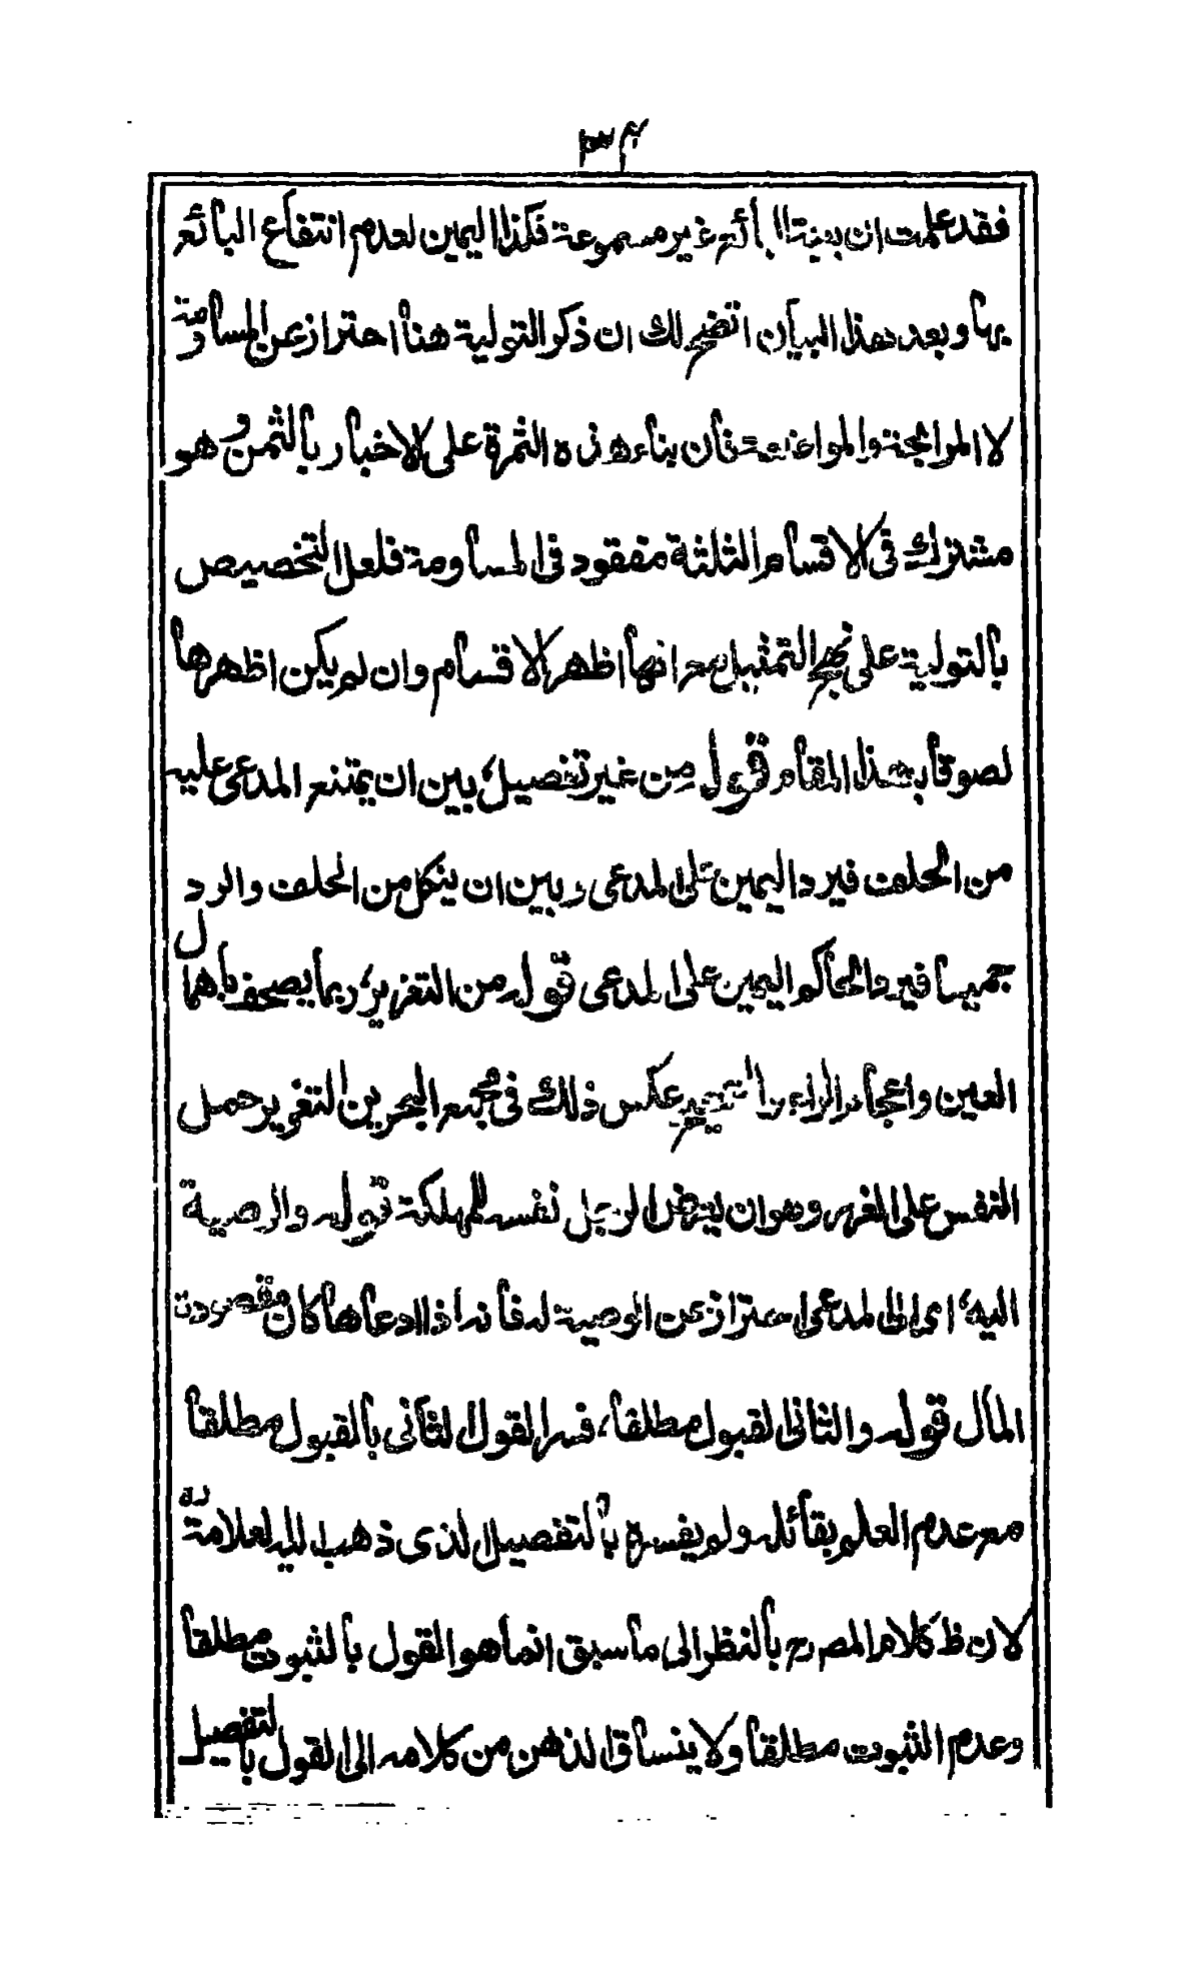 ٣٤
فقد علمت ان بينة البائع غير مسموعة فكذا اليمين لعدم انتفاع البائع
بها وبعد هذا البيان اتضح لك ان ذكر التولية هنا احتراز عن المساومة
لا المرابحة والمواضعة فان بناء هذه الثمرة على الاخبار بالثمن وهو
مشترك فى الاقسام الثلثة مفقود فى المساومة فلعل التخصيص
بالتولية على نهج التمثيل مع انها اظهر الاقسام وان لم يكن اظهرها
لصوقا بهذا المقام قوله من غير تفصيل، بين ان يمتنع المدعى عليه
من الحلف فيرد اليمين على المدعى وبين ان ينكل من الحلف والرد
جميعا فيرد الحاكم اليمين على المدعى قوله من التغرير، ربما يصحف باهمال
العين واعجام الراء عكس ذلك فى مجمع البحرين التغرير حمل
النفس على الغرر وهو ان يعرض الرجل نفسه للمهلكة قوله والوصية
اليه، اى الى المدعى احتراز عن الوصية له فانه اذا ادعاها كان مقصوده
المال قوله والثانى القبول مطلقا، فسر القول الثانى بالقبول مطلقا
مع عدم العلم بقائله ولم يفسره بالتفصيل الذى ذهب اليه العلامة ره
لان ظ كلام المصرح بالنظر الى ما سبق انما هو القول بالثبوت مطلقا
وعدم الثبوت مطلقا ولا ينساق الذهن من كلامه الى القول بالتفصيل